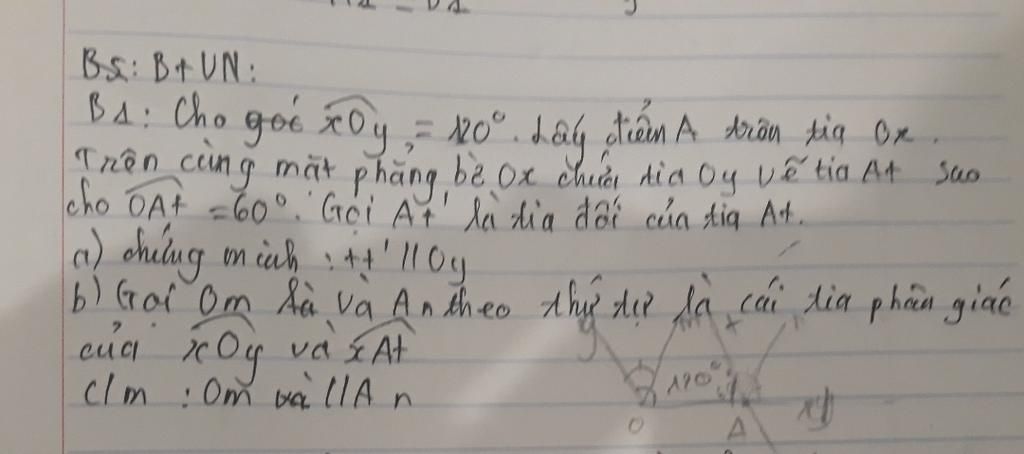 BS: B+VN:
B1: Cho góc xOy = 120°. Lấy điểm A trên tia Ox.
Trên cùng mặt phẳng bờ Ox chưới tia Oy vẽ tia At sao
cho OAt = 60°. Gọi At' là tia đối của tia At.
a) chứng minh : tt' // Oy
b) Gọi Om là và An theo thứ tự là cái tia phân giác
của xOy và xAt
C/m : Om và // A n
y m t n
120° 1
O A x